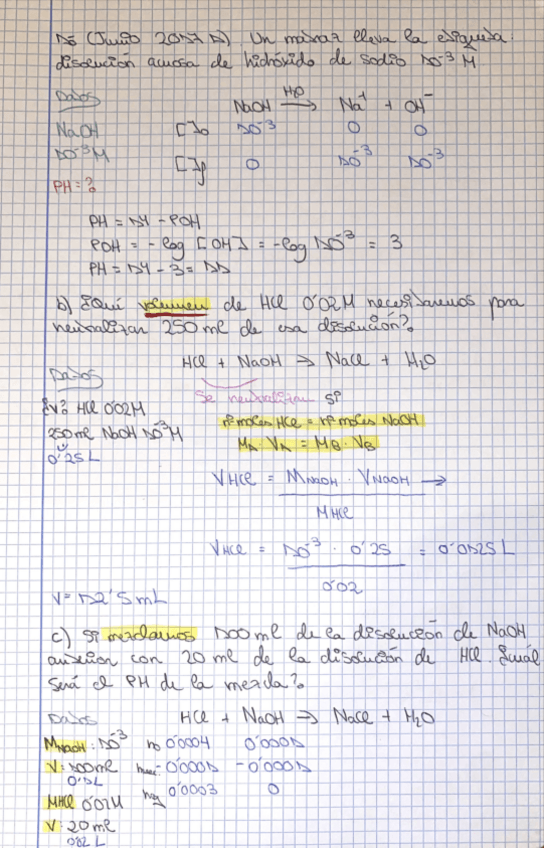 10 (Junio 2011 A) Un matraz lleva la etiqueta:
disolución acuosa de hidróxido de sodio 10⁻³ M
Datos
NaOH →(H₂O) Na⁺ + OH⁻
NaOH [ ]₀ 10⁻³ 0 0
10⁻³ M
[ ]f 0 10⁻³ 10⁻³
PH = ?
PH = 14 - POH
POH = -log [OH⁻] = -log 10⁻³ = 3
PH = 14 - 3 = 11
b) ¿Qué volumen de HCl 0'02M necesitaremos para
neutralizar 250 ml de esa disolución?
HCl + NaOH → NaCl + H₂O
Datos
Se neutralizan si
¿v? HCl 0'02M
nº moles HCl = nº moles NaOH
250 ml NaOH 10⁻³ M
MA · VA = MB · VB
0'25 L
VHCl = MNaOH · VNaOH / MHCl →
VHCl = 10⁻³ · 0'25 / 0'02 = 0'0125 L
V = 12'5 mL
c) Si mezclamos 100 ml de la disolución de NaOH
anterior con 20 ml de la disolución de HCl. ¿Cuál
será el PH de la mezcla?
Datos HCl + NaOH → NaCl + H₂O
MNaOH: 10⁻³ n₀ 0'0004 0'0001
V: 100 ml -0'0001 -0'0001
0'1 L
0'0003 0
MHCl 0'02M
V: 20 ml
0'02 L